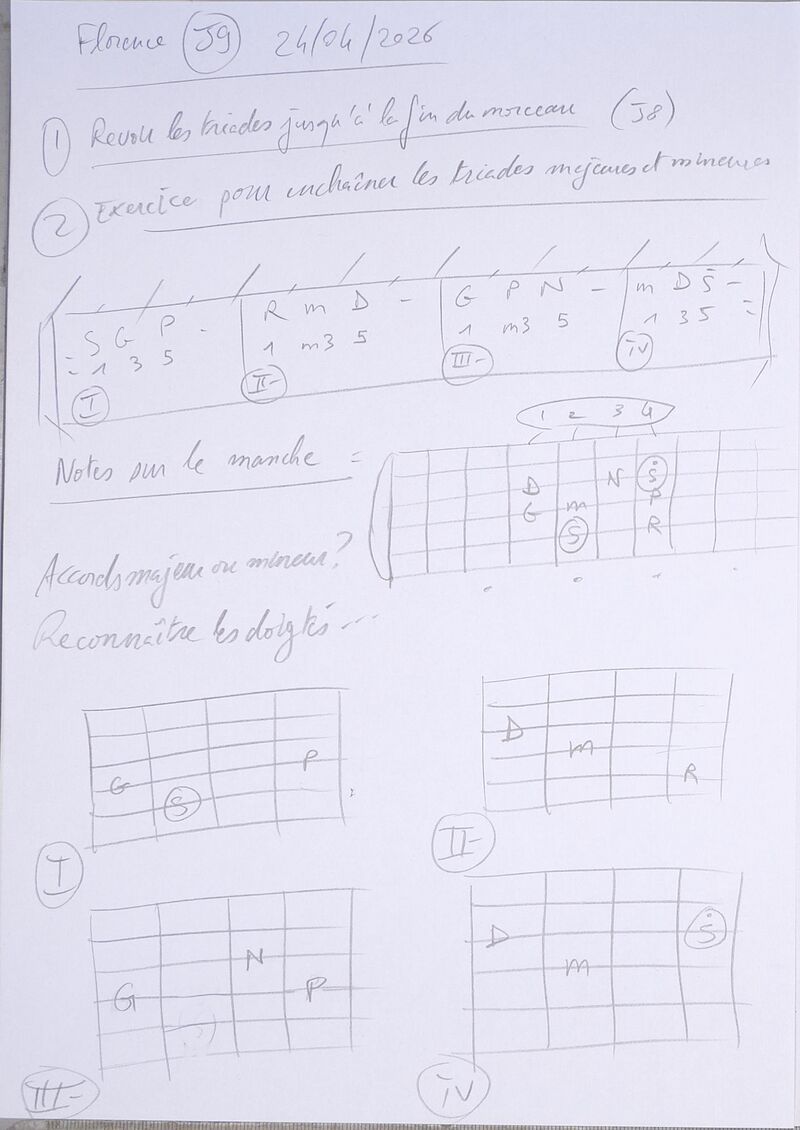 Florence J9 24/04/2026
1 Revoir les triades jusqu'à la fin du morceau (J8)
2 Exercice pour enchaîner les triades majeures et mineures
S G P - R m D - G P N - m D Ṡ -
1 3 5 1 m3 5 1 m3 5 1 3 5
I II- III- IV
Notes sur le manche =
1 2 3 4
D N Ṡ
G m P
S R
Accords majeur ou mineur?
Reconnaître les doigtés...
G S P
I
D m R
II-
G N P
III-
D m Ṡ
IV